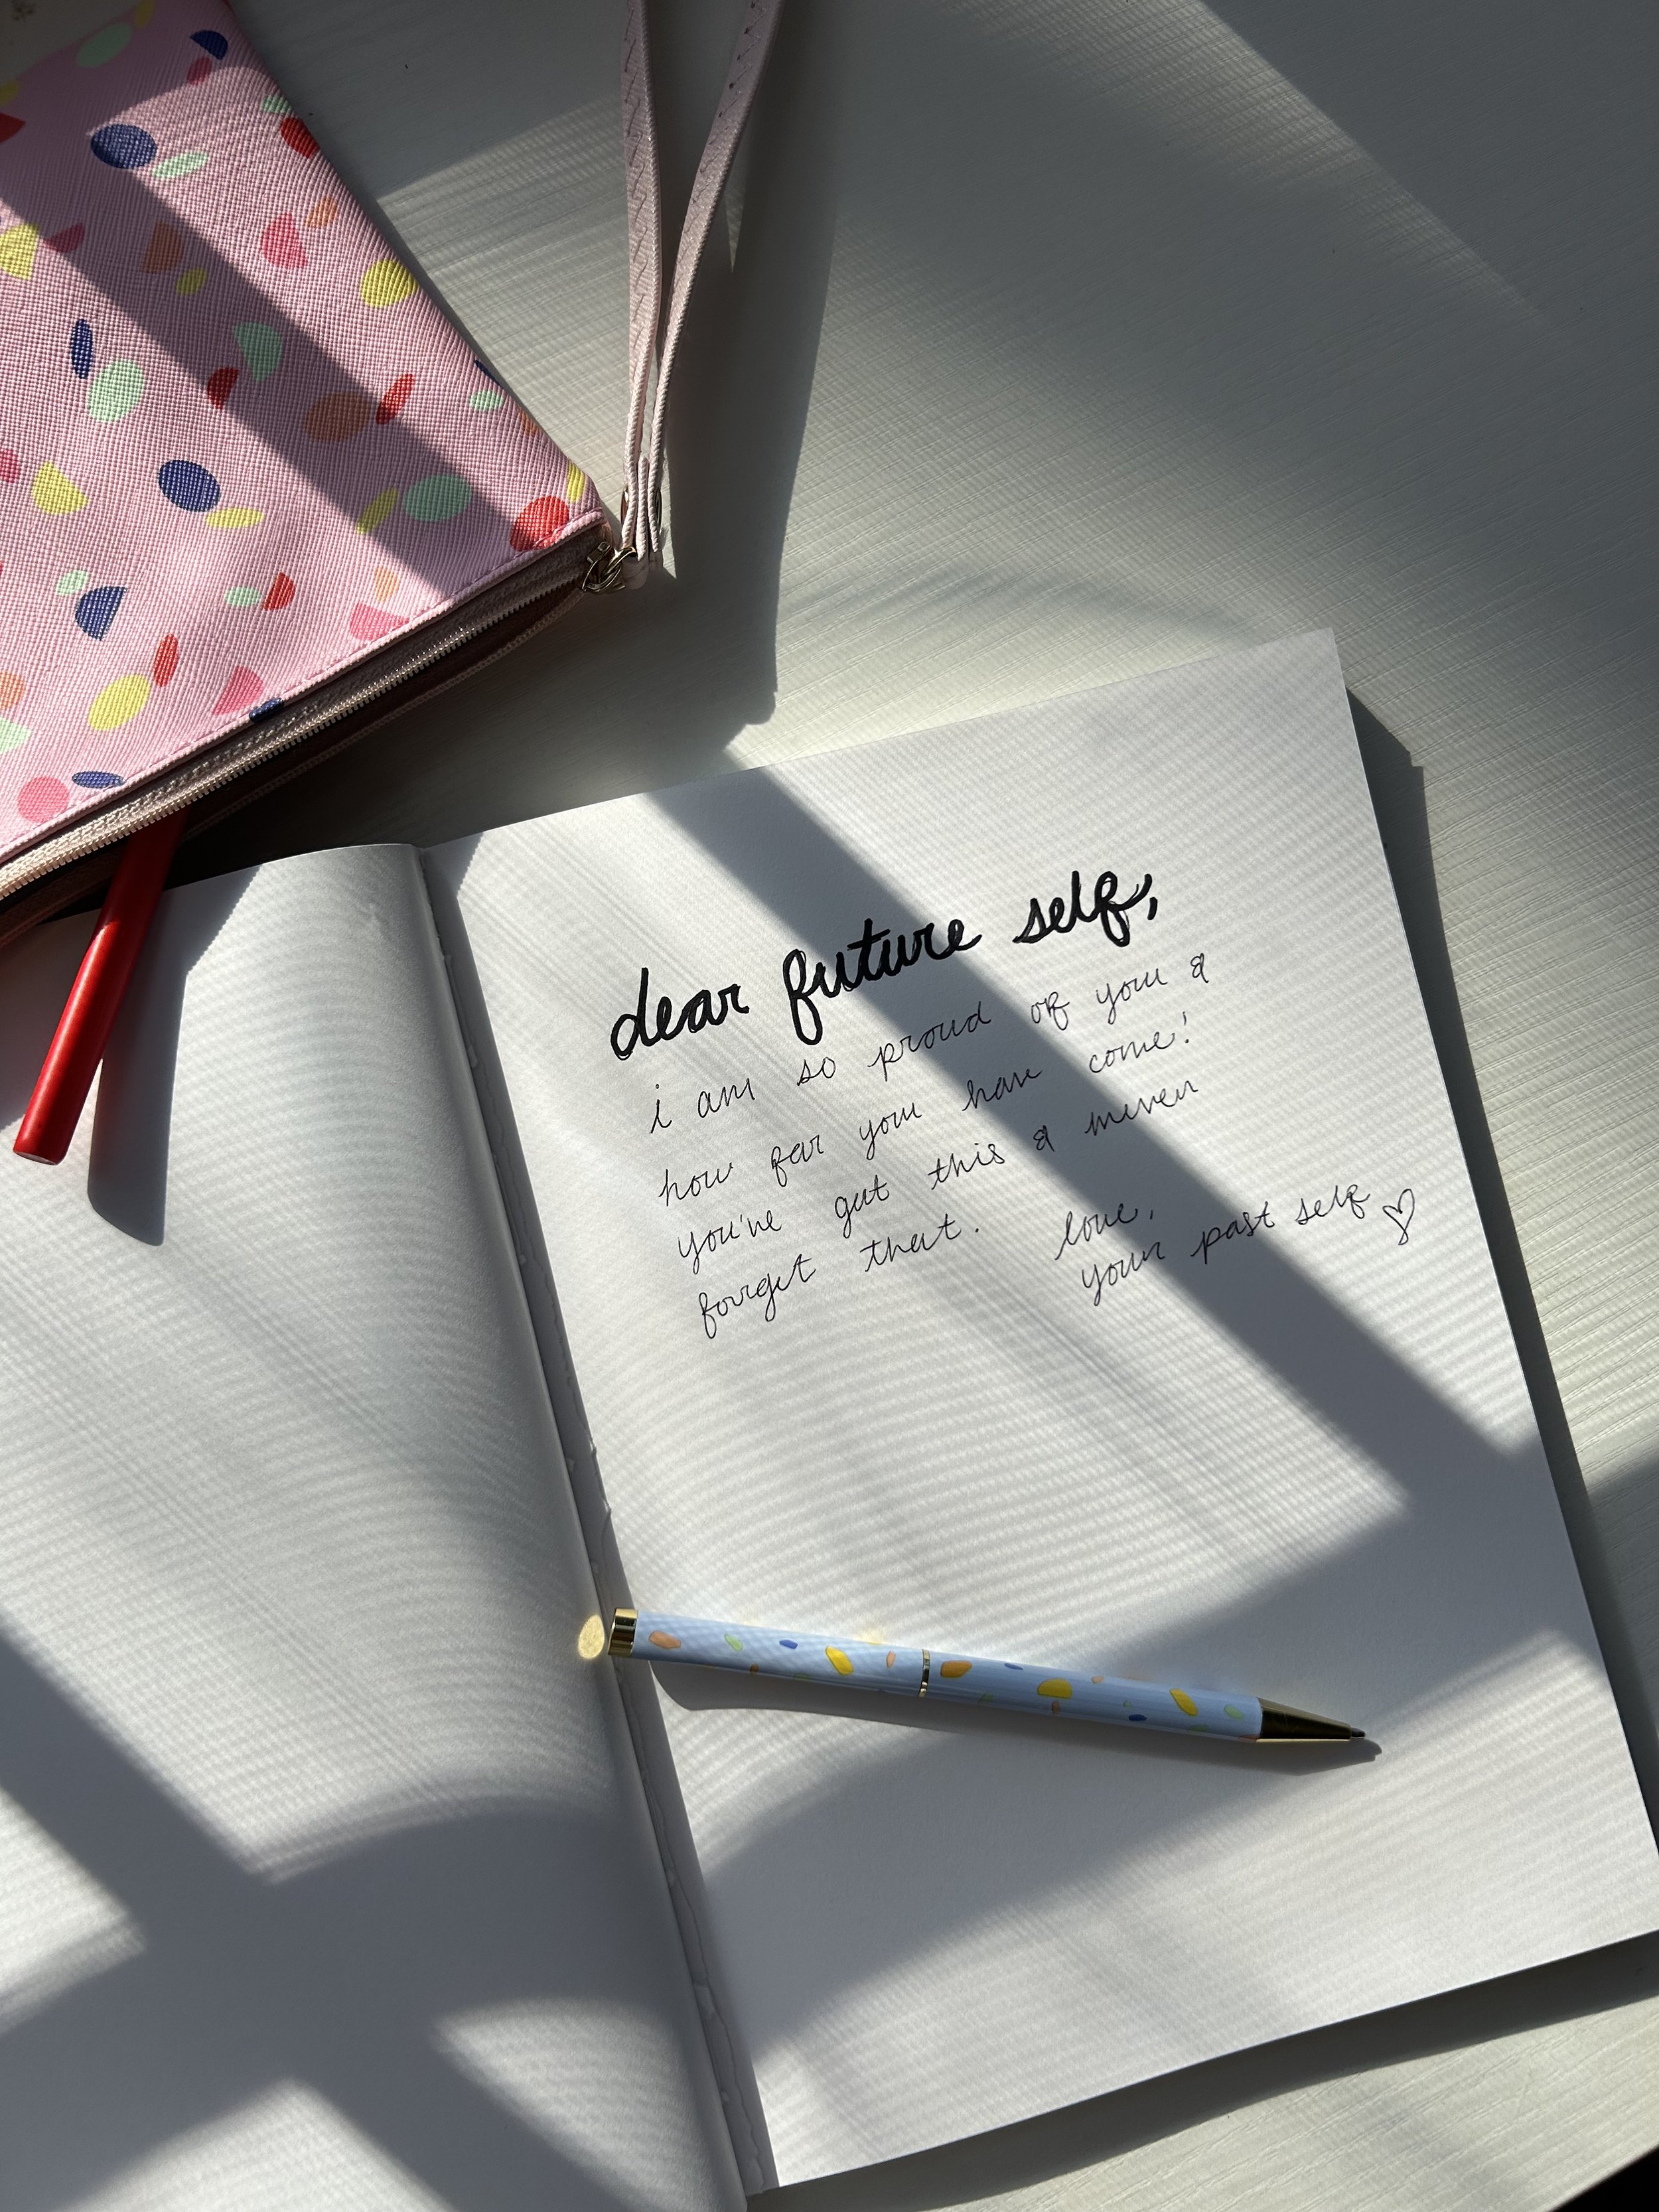 dear future self,
i am so proud of you &
how far you have come!
you've got this & never
forget that.
love,
your past self ♡